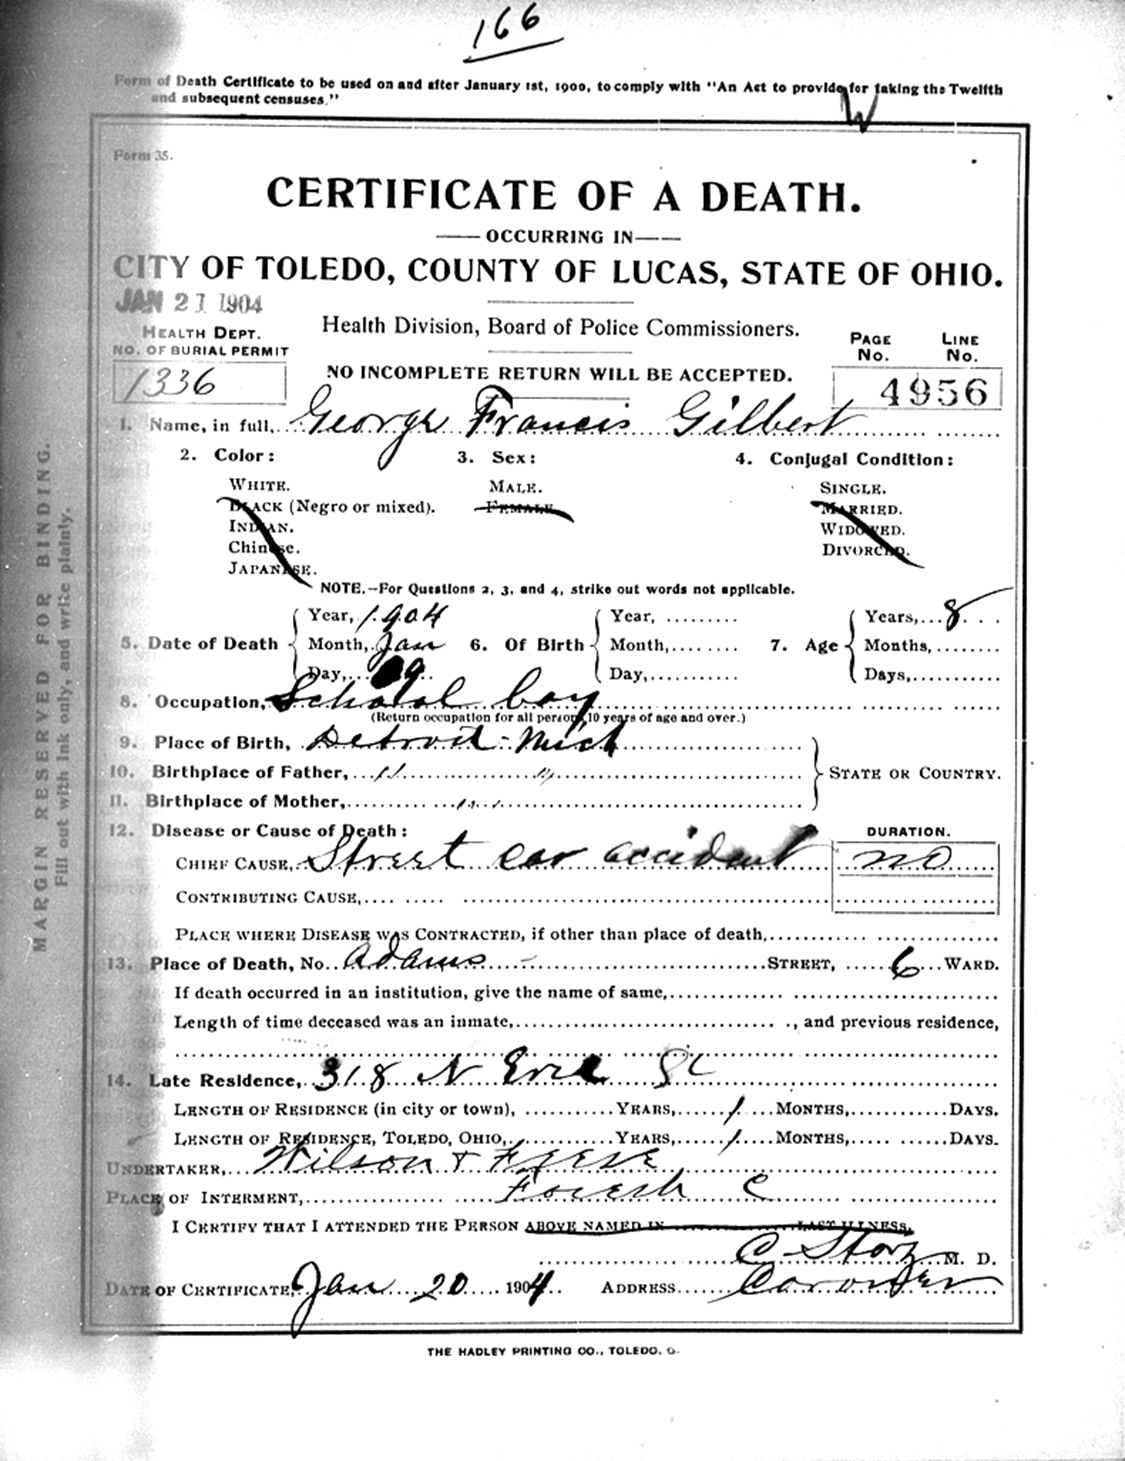 166
Form of Death Certificate to be used on and after January 1st, 1900, to comply with "An Act to provide for taking the Twelfth
and subsequent censuses."
W
Form 35.
CERTIFICATE OF A DEATH.
OCCURRING IN
CITY OF TOLEDO, COUNTY OF LUCAS, STATE OF OHIO.
JAN 21 1904
Health Division, Board of Police Commissioners.
HEALTH DEPT.
NO. OF BURIAL PERMIT
1336
PAGE No. LINE No.
4956
NO INCOMPLETE RETURN WILL BE ACCEPTED.
1. Name, in full, George Francis Gilbert
2. Color: 3. Sex: 4. Conjugal Condition:
WHITE. MALE. SINGLE.
BLACK (Negro or mixed). FEMALE. MARRIED.
INDIAN. WIDOWED.
Chinese. DIVORCED.
JAPANESE.
NOTE.—For Questions 2, 3, and 4, strike out words not applicable.
Year, 1904 Year, Years, 8
5. Date of Death Month, Jan 6. Of Birth Month, 7. Age Months,
Day, 19 Day, Days,
8. Occupation, School boy
(Return occupation for all persons 10 years of age and over.)
9. Place of Birth, Detroit Mich
10. Birthplace of Father, " " STATE OR COUNTRY.
11. Birthplace of Mother, " "
12. Disease or Cause of Death: DURATION.
CHIEF CAUSE, Street car accident no
CONTRIBUTING CAUSE,
PLACE WHERE DISEASE WAS CONTRACTED, if other than place of death,
13. Place of Death, No. Adams STREET, 6 WARD.
If death occurred in an institution, give the name of same,
Length of time deceased was an inmate, , and previous residence,
14. Late Residence, 318 N Erie St
LENGTH OF RESIDENCE (in city or town), YEARS, 1 MONTHS, DAYS.
LENGTH OF RESIDENCE, TOLEDO, OHIO, YEARS, 1 MONTHS, DAYS.
UNDERTAKER, Wilson &
PLACE OF INTERMENT, Forest C
I CERTIFY THAT I ATTENDED THE PERSON ABOVE NAMED IN LAST ILLNESS.
C Storz M. D.
DATE OF CERTIFICATE, Jan 20 1904 ADDRESS Coroner
THE HADLEY PRINTING CO., TOLEDO, O.
MARGIN RESERVED FOR BINDING.
Fill out with ink only, and write plainly.